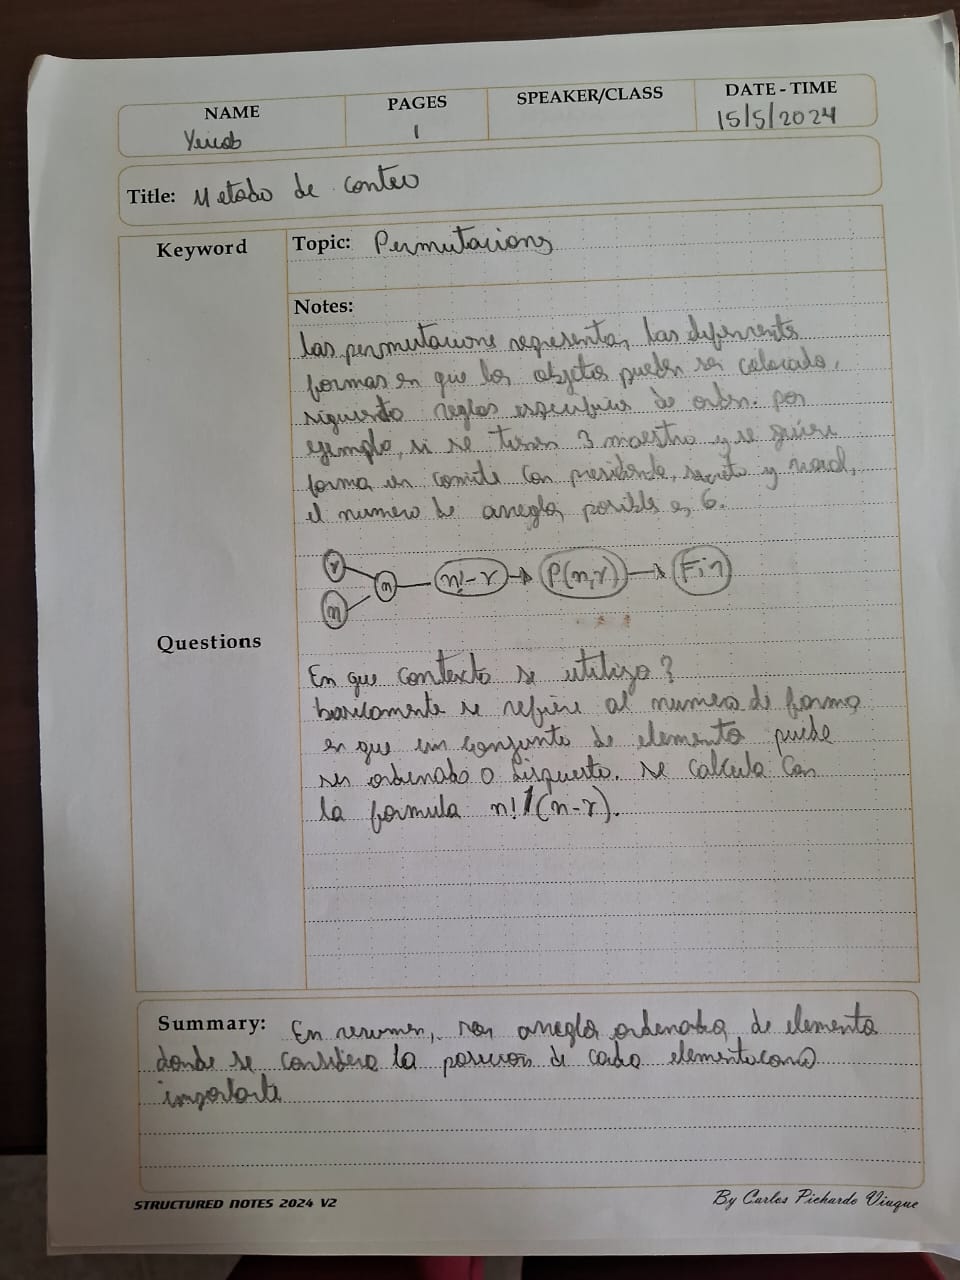 NAME
PAGES
SPEAKER/CLASS
DATE - TIME
1
15/5/2024
Title: Metodo de conteo
Keyword
Topic: Permutacions
Notes:
las permutacione representan las diferrents
formas en que los objetos pueden ser colocado,
siguiendo reglas especificas de orden. por
ejemplo, si se tienen 3 maestro y se quiere
forma un comite con presidente, y
el numero de arreglos posible es 6.
r
n
n
n!-r
P(n,r)
Fin
Questions
En que contexto se utiliza?
basicamente se refiere al numero de forma
en que un conjunto de elemento puede
ser ordenado o dispuesto. se calcula con
la formula n!/(n-r).
Summary: En resumen, son arreglo ordenados de elemento
donde se considera la posicion de cada elemento como
importante
STRUCTURED NOTES 2024 V2
By Carlos Pichardo Viuque